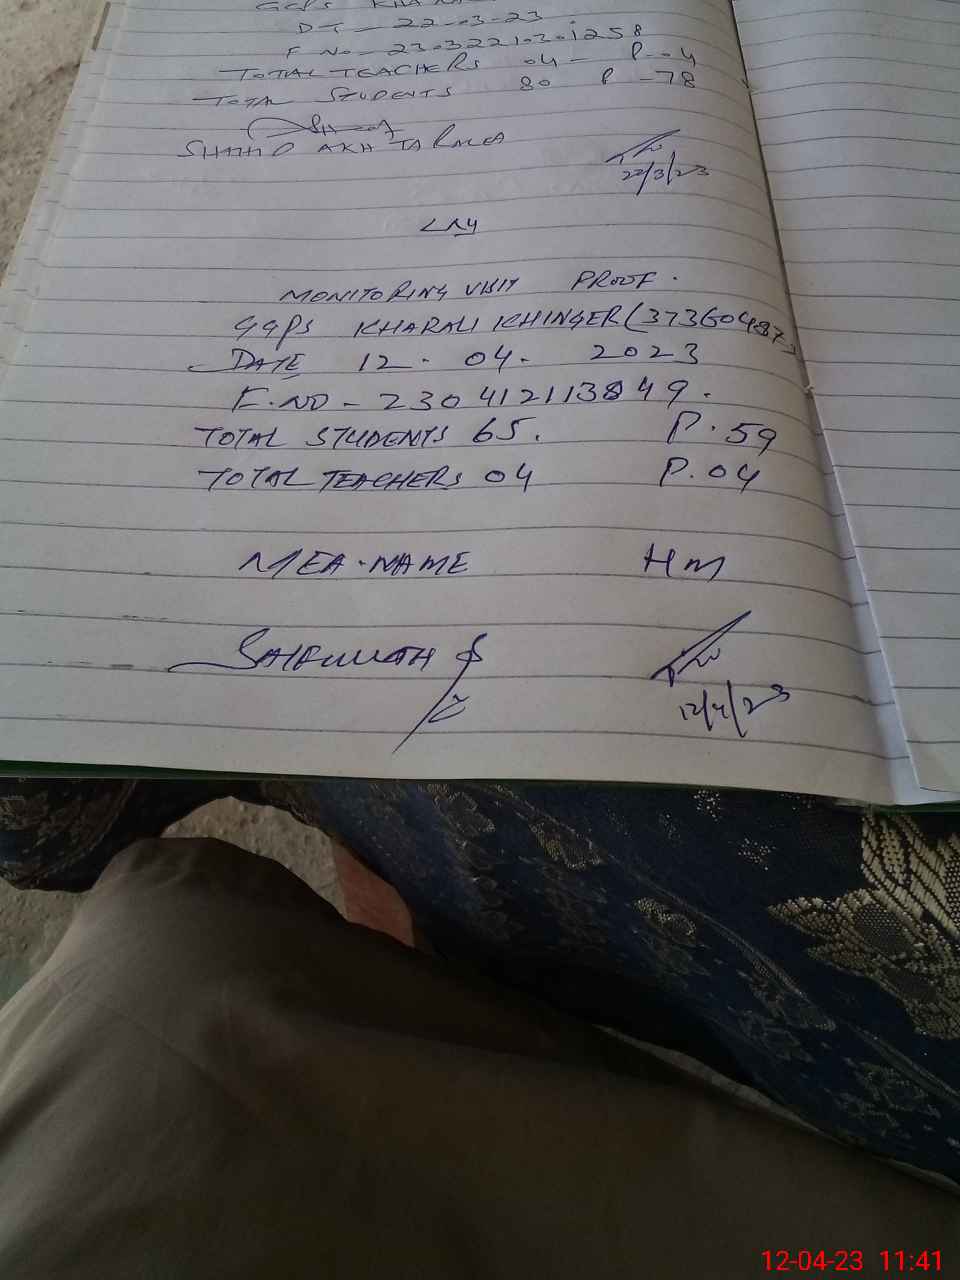 DT - 22-03-23
F No - 2303221030 1258
TOTAL TEACHERS 04 - P-04
TOTAL STUDENTS 80 P-78
22/3/23
MONITORING VISIT PROOF.
GGPS KHARALI KHINGER (37360487)
DATE 12. 04. 2023
F.NO - 230412113849.
TOTAL STUDENTS 65. P.59
TOTAL TEACHERS 04 P.04
MEA.NAME HM
12/4/23
12-04-23 11:41